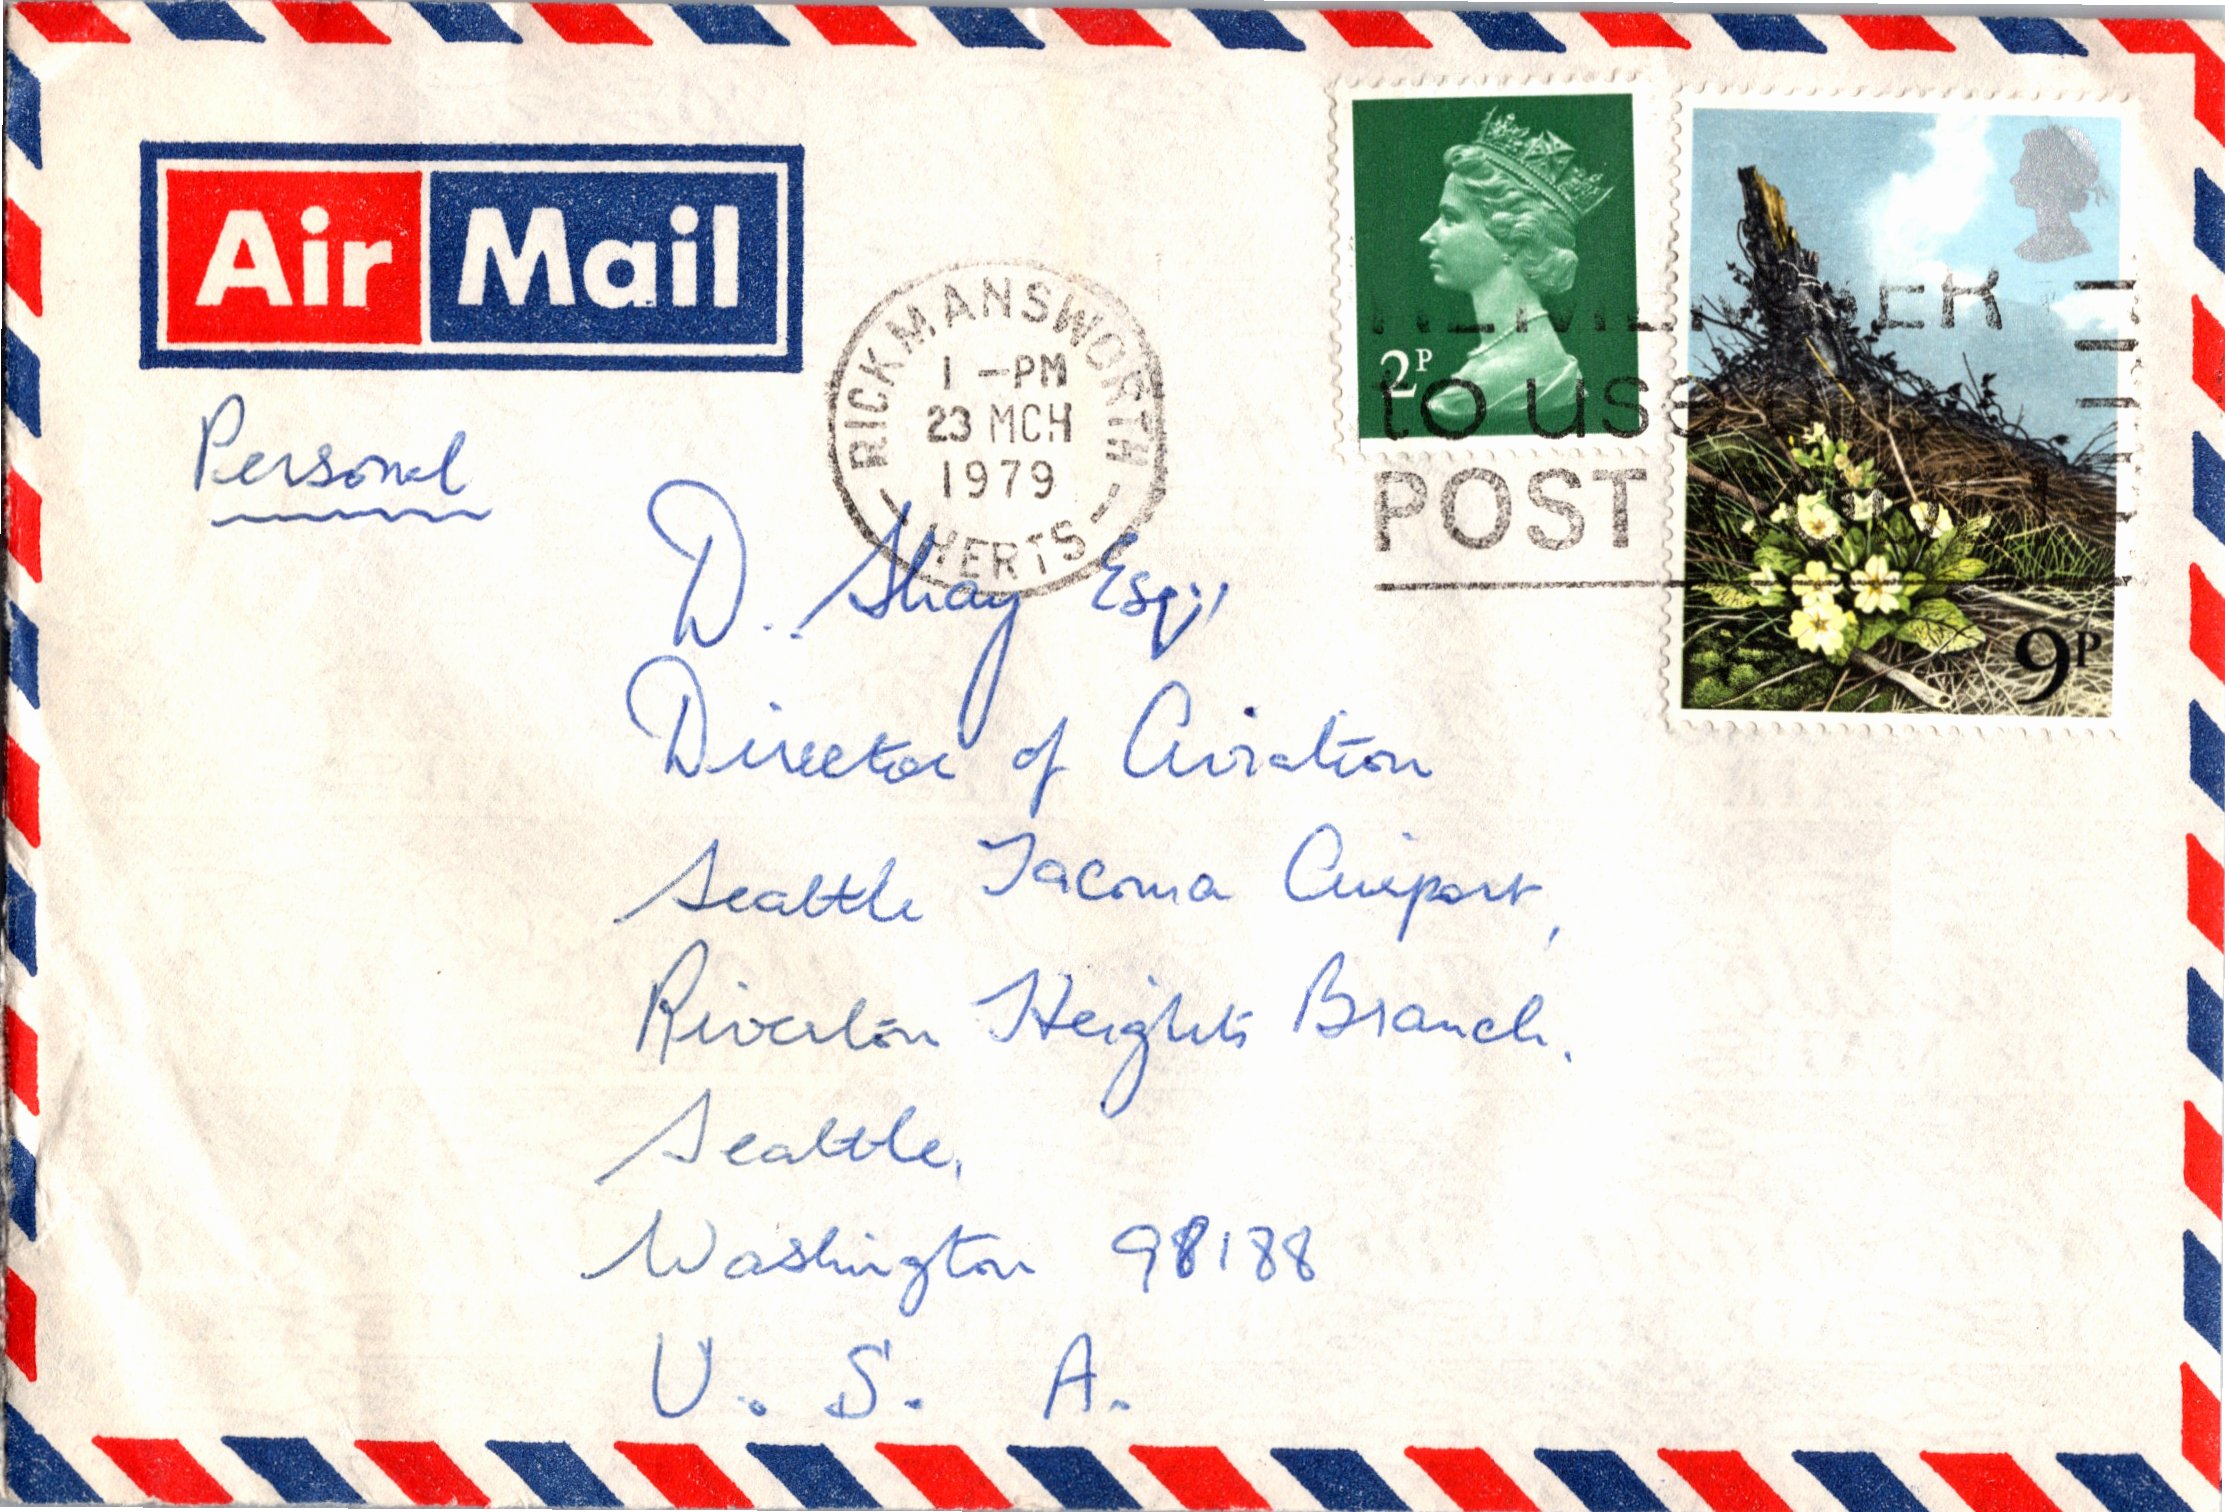 Air Mail
Personal
RICKMANSWORTH
1 -PM
23 MCH
1979
HERTS
2P
9P
REMEMBER
to use
POST
D. Shay Esq.,
Director of Aviation
Seattle Tacoma Airport,
Riverton Heights Branch.
Seattle,
Washington 98188
U. S. A.